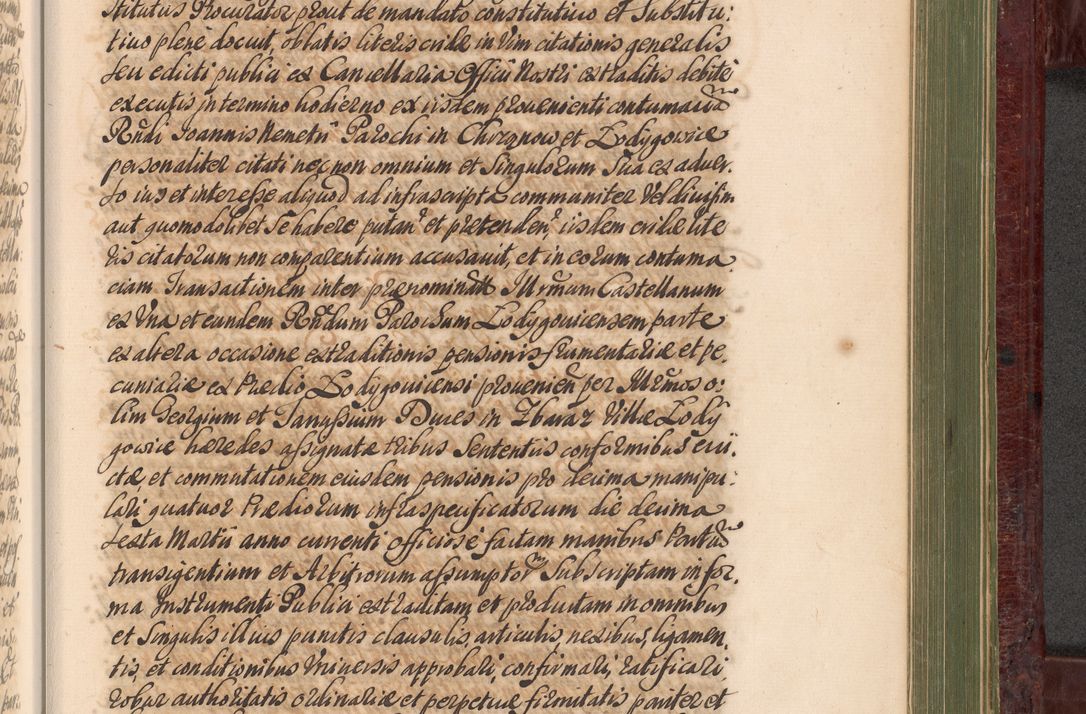 stitutus Procurator prout de mandato constitutivo et Substitu:
tivo plene docuit, oblatis literis cridae in vim citationis generalis
seu edicti publici ex Cancellaria Officii Nostri extraditis debite
executis in termino hodierno ex iisdem provenienti contumacia
Rndi Joannis Nemetii Parochi in Chirznow et Lodygowice
personaliter citati nec non omnium et Singulorum Sua ex adver.
so ius et interesse aliquod ad infrascripta communiter vel divisim
aut quomodolibet Se habere putan et pretenden iisdem cridae lite
ris citatorum non comparentium accusavit, et in eorum contuma
ciam Transactionem inter praenominatt Illrmum Castellanum
ex Una et eundem Rndum Parochum Lodygoviensem parte
ex altera occasione extraditionis pensionis frumentariae et pe.
cuniariae ex Praedio Lodygoviensi provenien per Illrmos o:
lim Georgium et Janussium Duces in Zbaraz Villae Lody
gowice haeredes assignatae tribus Sententiis conformibus evi.
ctae et commutationem eiusdem pensionis pro decima manipu:
lari quatuor Praediorum infraspecificatorum die decima
sexta Martii anno currenti officiose factam manibus Partium
transigentium et Arbitrorum assumptor Subscriptam in for.
ma Instrumenti Publici extraditam et productam in omnibus
et Singulis illius punctis clausulis articulis nexibus, ligamen.
tis, et conditionibus Universis approbari, confirmari, ratificari
robur authoritatis ordinariae et perpetuae firmitatis pariter et